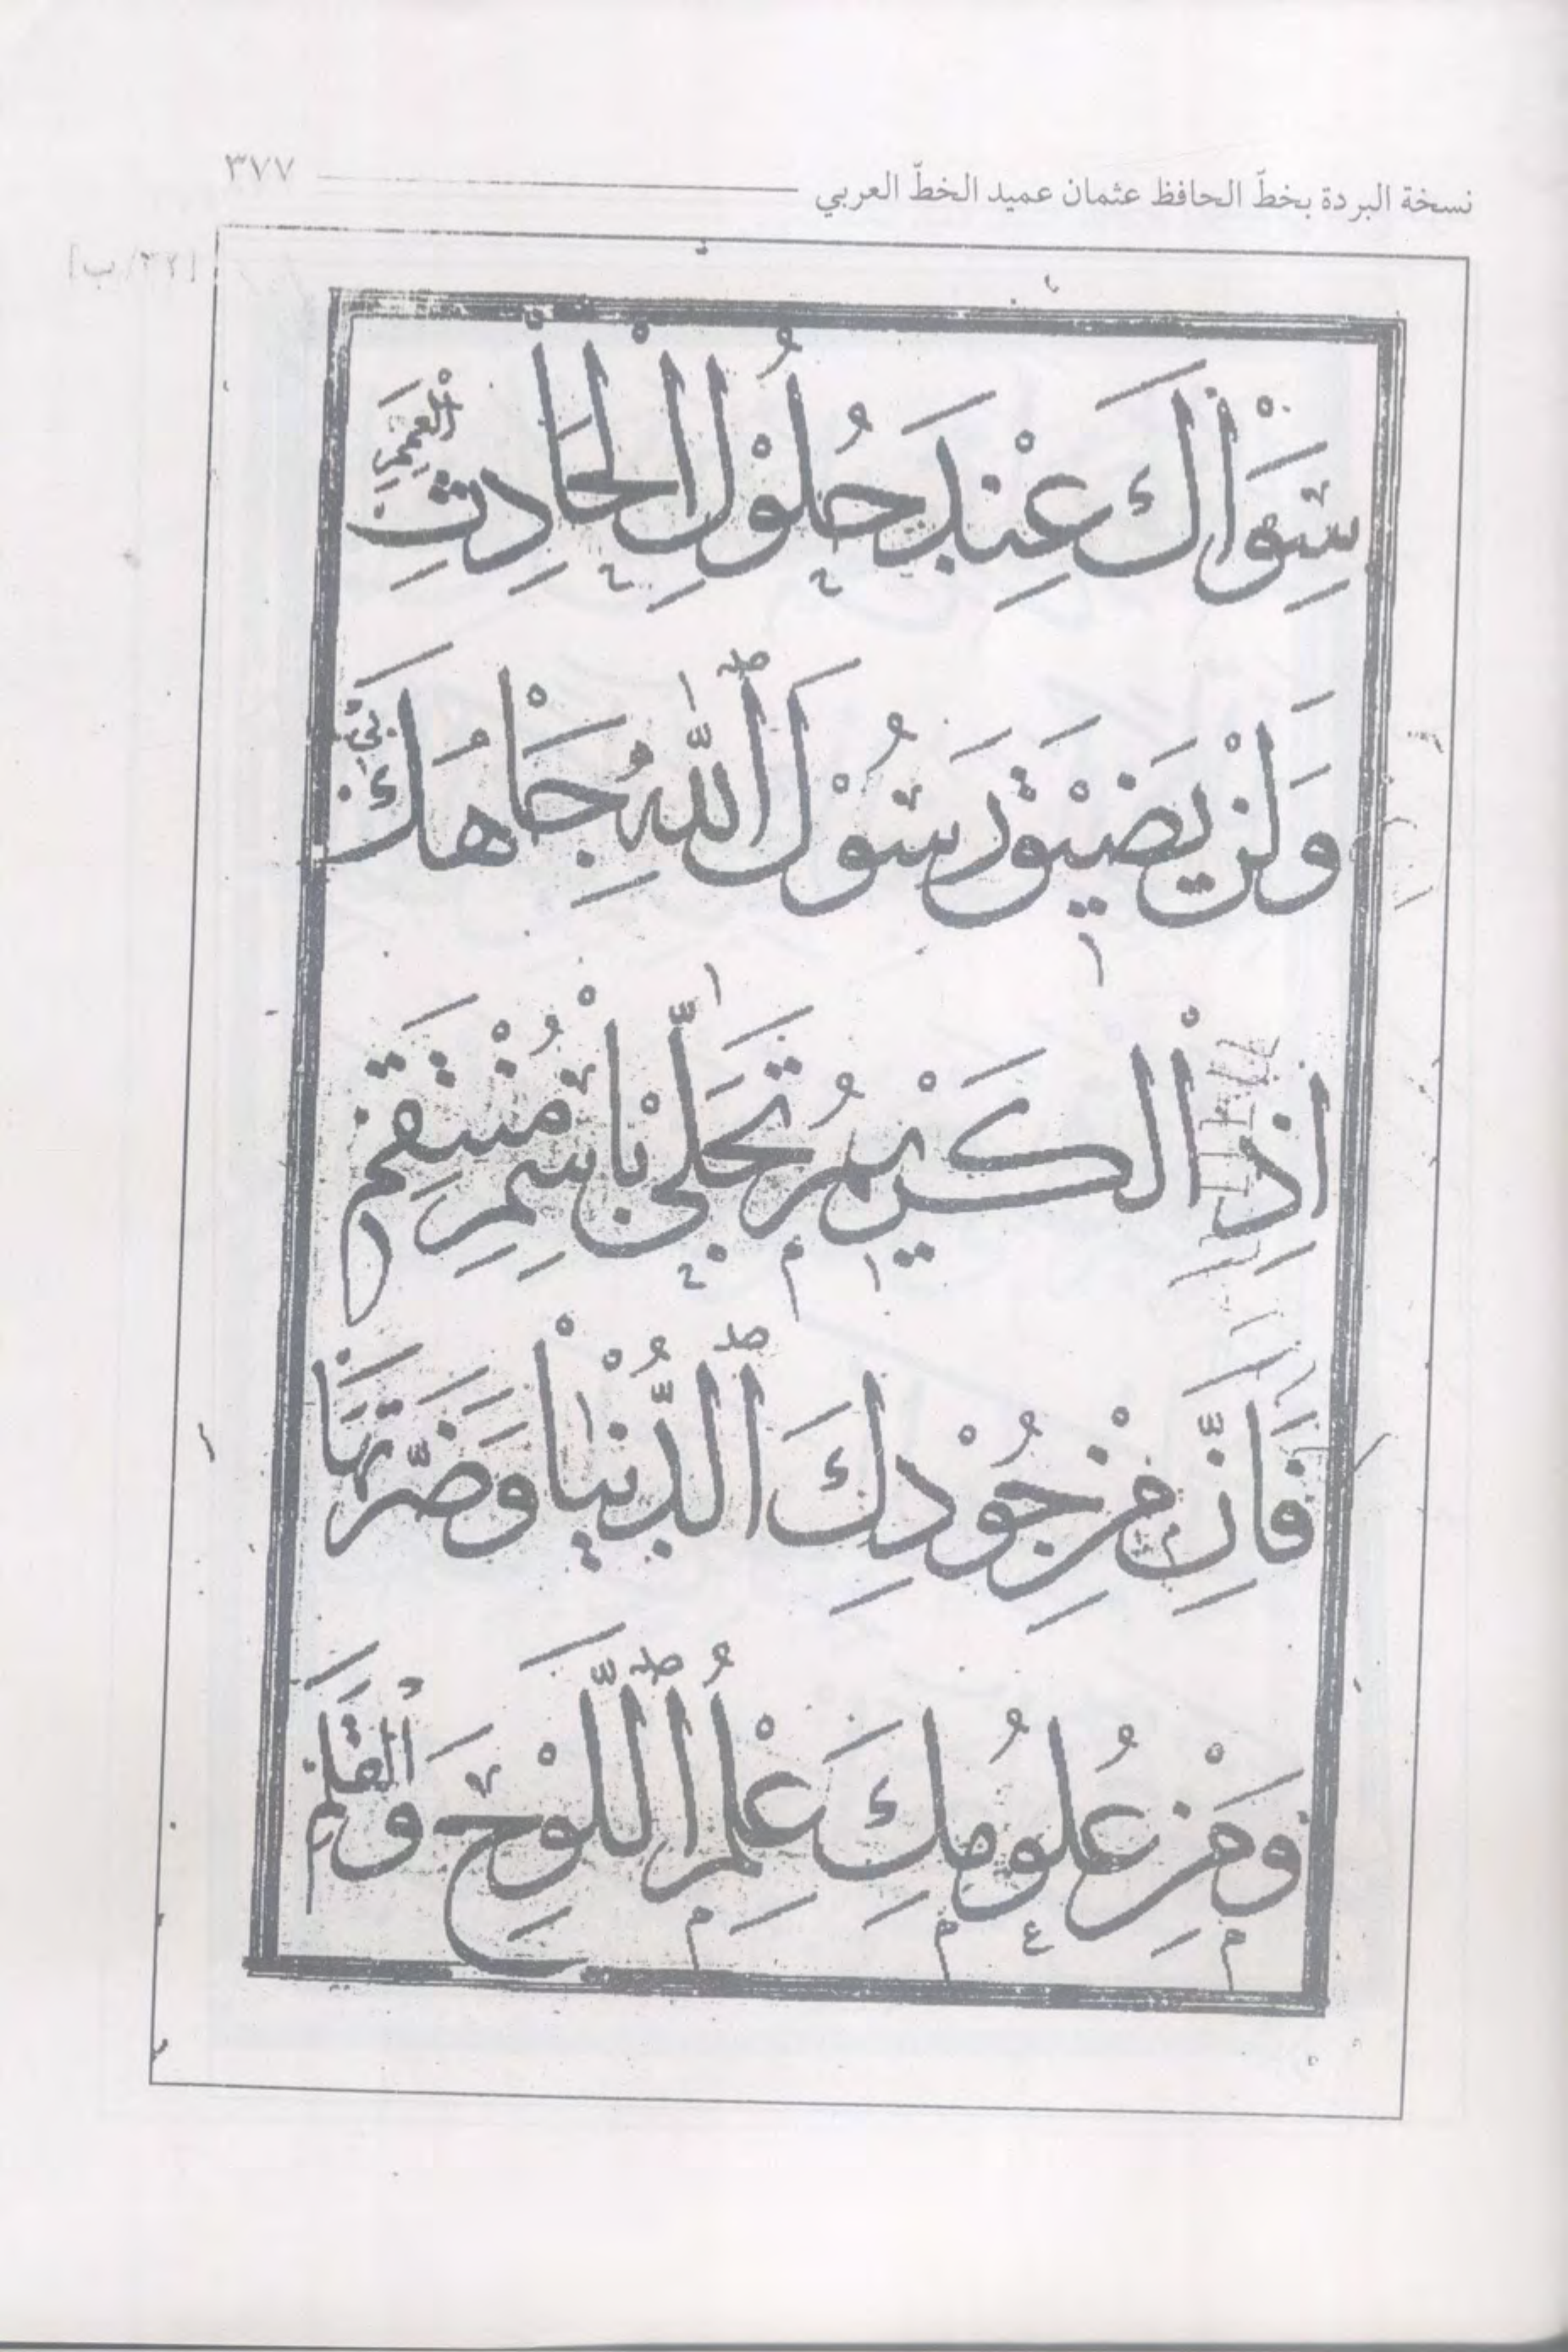 نسخة البردة بخطّ الحافظ عثمان عميد الخطّ العربي ٣٧٧
[٢٢/ب]
سِوَاكَ عِنْدَ حُلُوْلِ الْحَادِثِ الْعَمِمِ
وَلَنْ يَضِيْقَ رَسُوْلَ اللّٰهُ جَاهُكَ بِيْ
اِذِ الْكَرِيْمُ تَحَلّٰى بِاسْمِ مُنْتَقِمِ
فَاِنَّ مِنْ جُوْدِكَ الدُّنْيَا وَضَرَّتَهَا
وَمِنْ عُلُومِكَ عِلْمُ اللَّوْحِ وَالْقَلَمِ